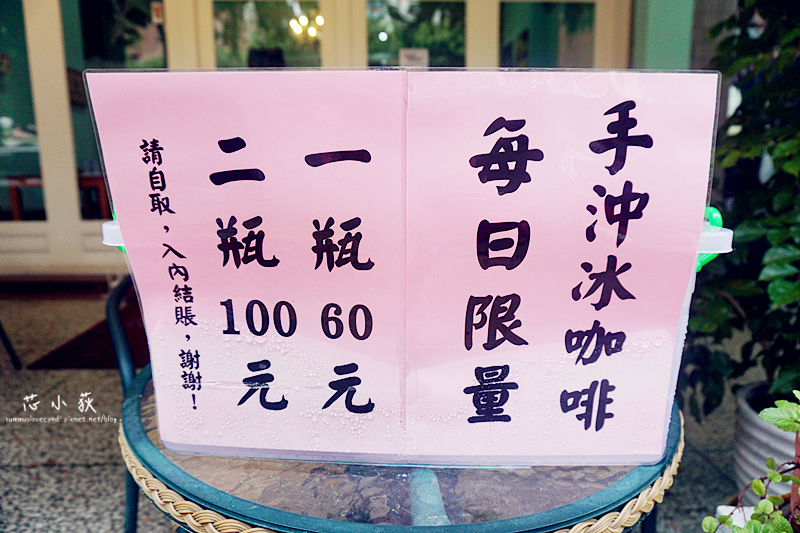 手沖冰咖啡
每日限量
一瓶60元
二瓶100元
請自取，入內結賬，謝謝！
芯小荻
summunlovecyndi pixnet.net/blog